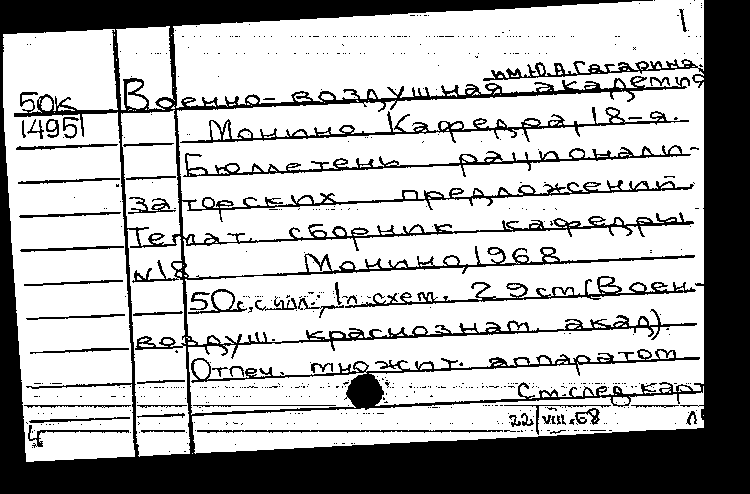 1
им. Ю.А. Гагарина.
50к Военно-воздушная академия
14951 Монино. Кафедра, 18-я.
Бюллетень рационали-
заторских предложений.
Темат. сборник кафедры
N18. Монино, 1968
50с. с илл.; 1л. схем. 29 см (Воен-
воздуш. краснознам. акад).
Отпеч. множит. аппаратом
См. след. карт
22/VIII.68
4